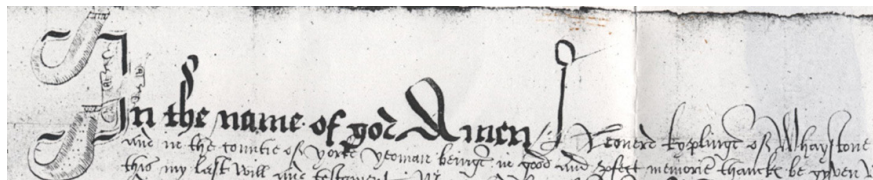 In the name of god Amen I Leonerd kyplinge of Whaystone
and in the countie of yorke yeoman beinge in good and pfect memorie thancke be gyven
this my last will and testament